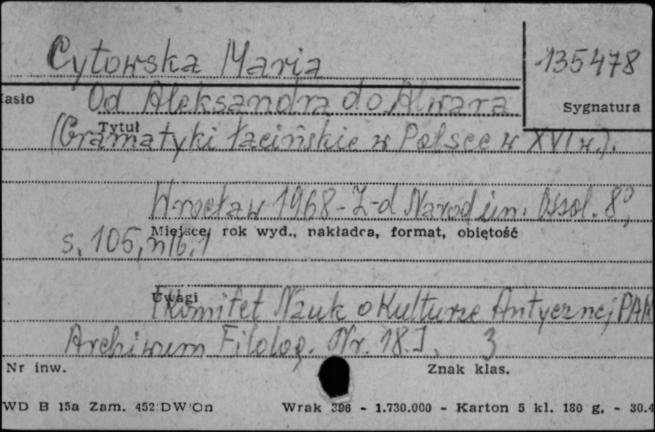 Cytowska Maria
135478
Hasło
Od Aleksandra do Alwara
Sygnatura
Tytuł
(Gramatyki łacińskie w Polsce w XVI w.).
Wrocław 1968 - Z-d Narod im. Ossol. 8°,
Miejsce, rok wyd., nakładca, format, objętość
s. 105, nlb. 1
Uwagi
(Komitet Nauk o Kulturze Antycznej PAN
Archiwum Filolog. Nr. 18.) . 3
Nr inw.
Znak klas.
WD B 15a Zam. 452/DW/On
Wrak 396 - 1.730.000 - Karton 5 kl. 180 g. - 30.4